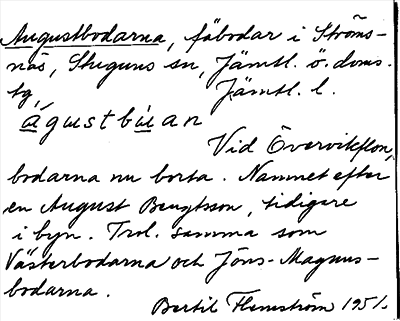 Augustbodarna, fäbodar i Ströms-
näs, Stuguns sn, Jämtl. ö. doms.
tg, Jämtl. l.
águstbu̇an
Vid Övervikflon,
bodarna nu borta. Namnet efter
en August Bengtsson, tidigare
i byn. Trol. samma som
Västerbodarna och Jöns-Magnus-
bodarna.
Bertil Flemström 1951.